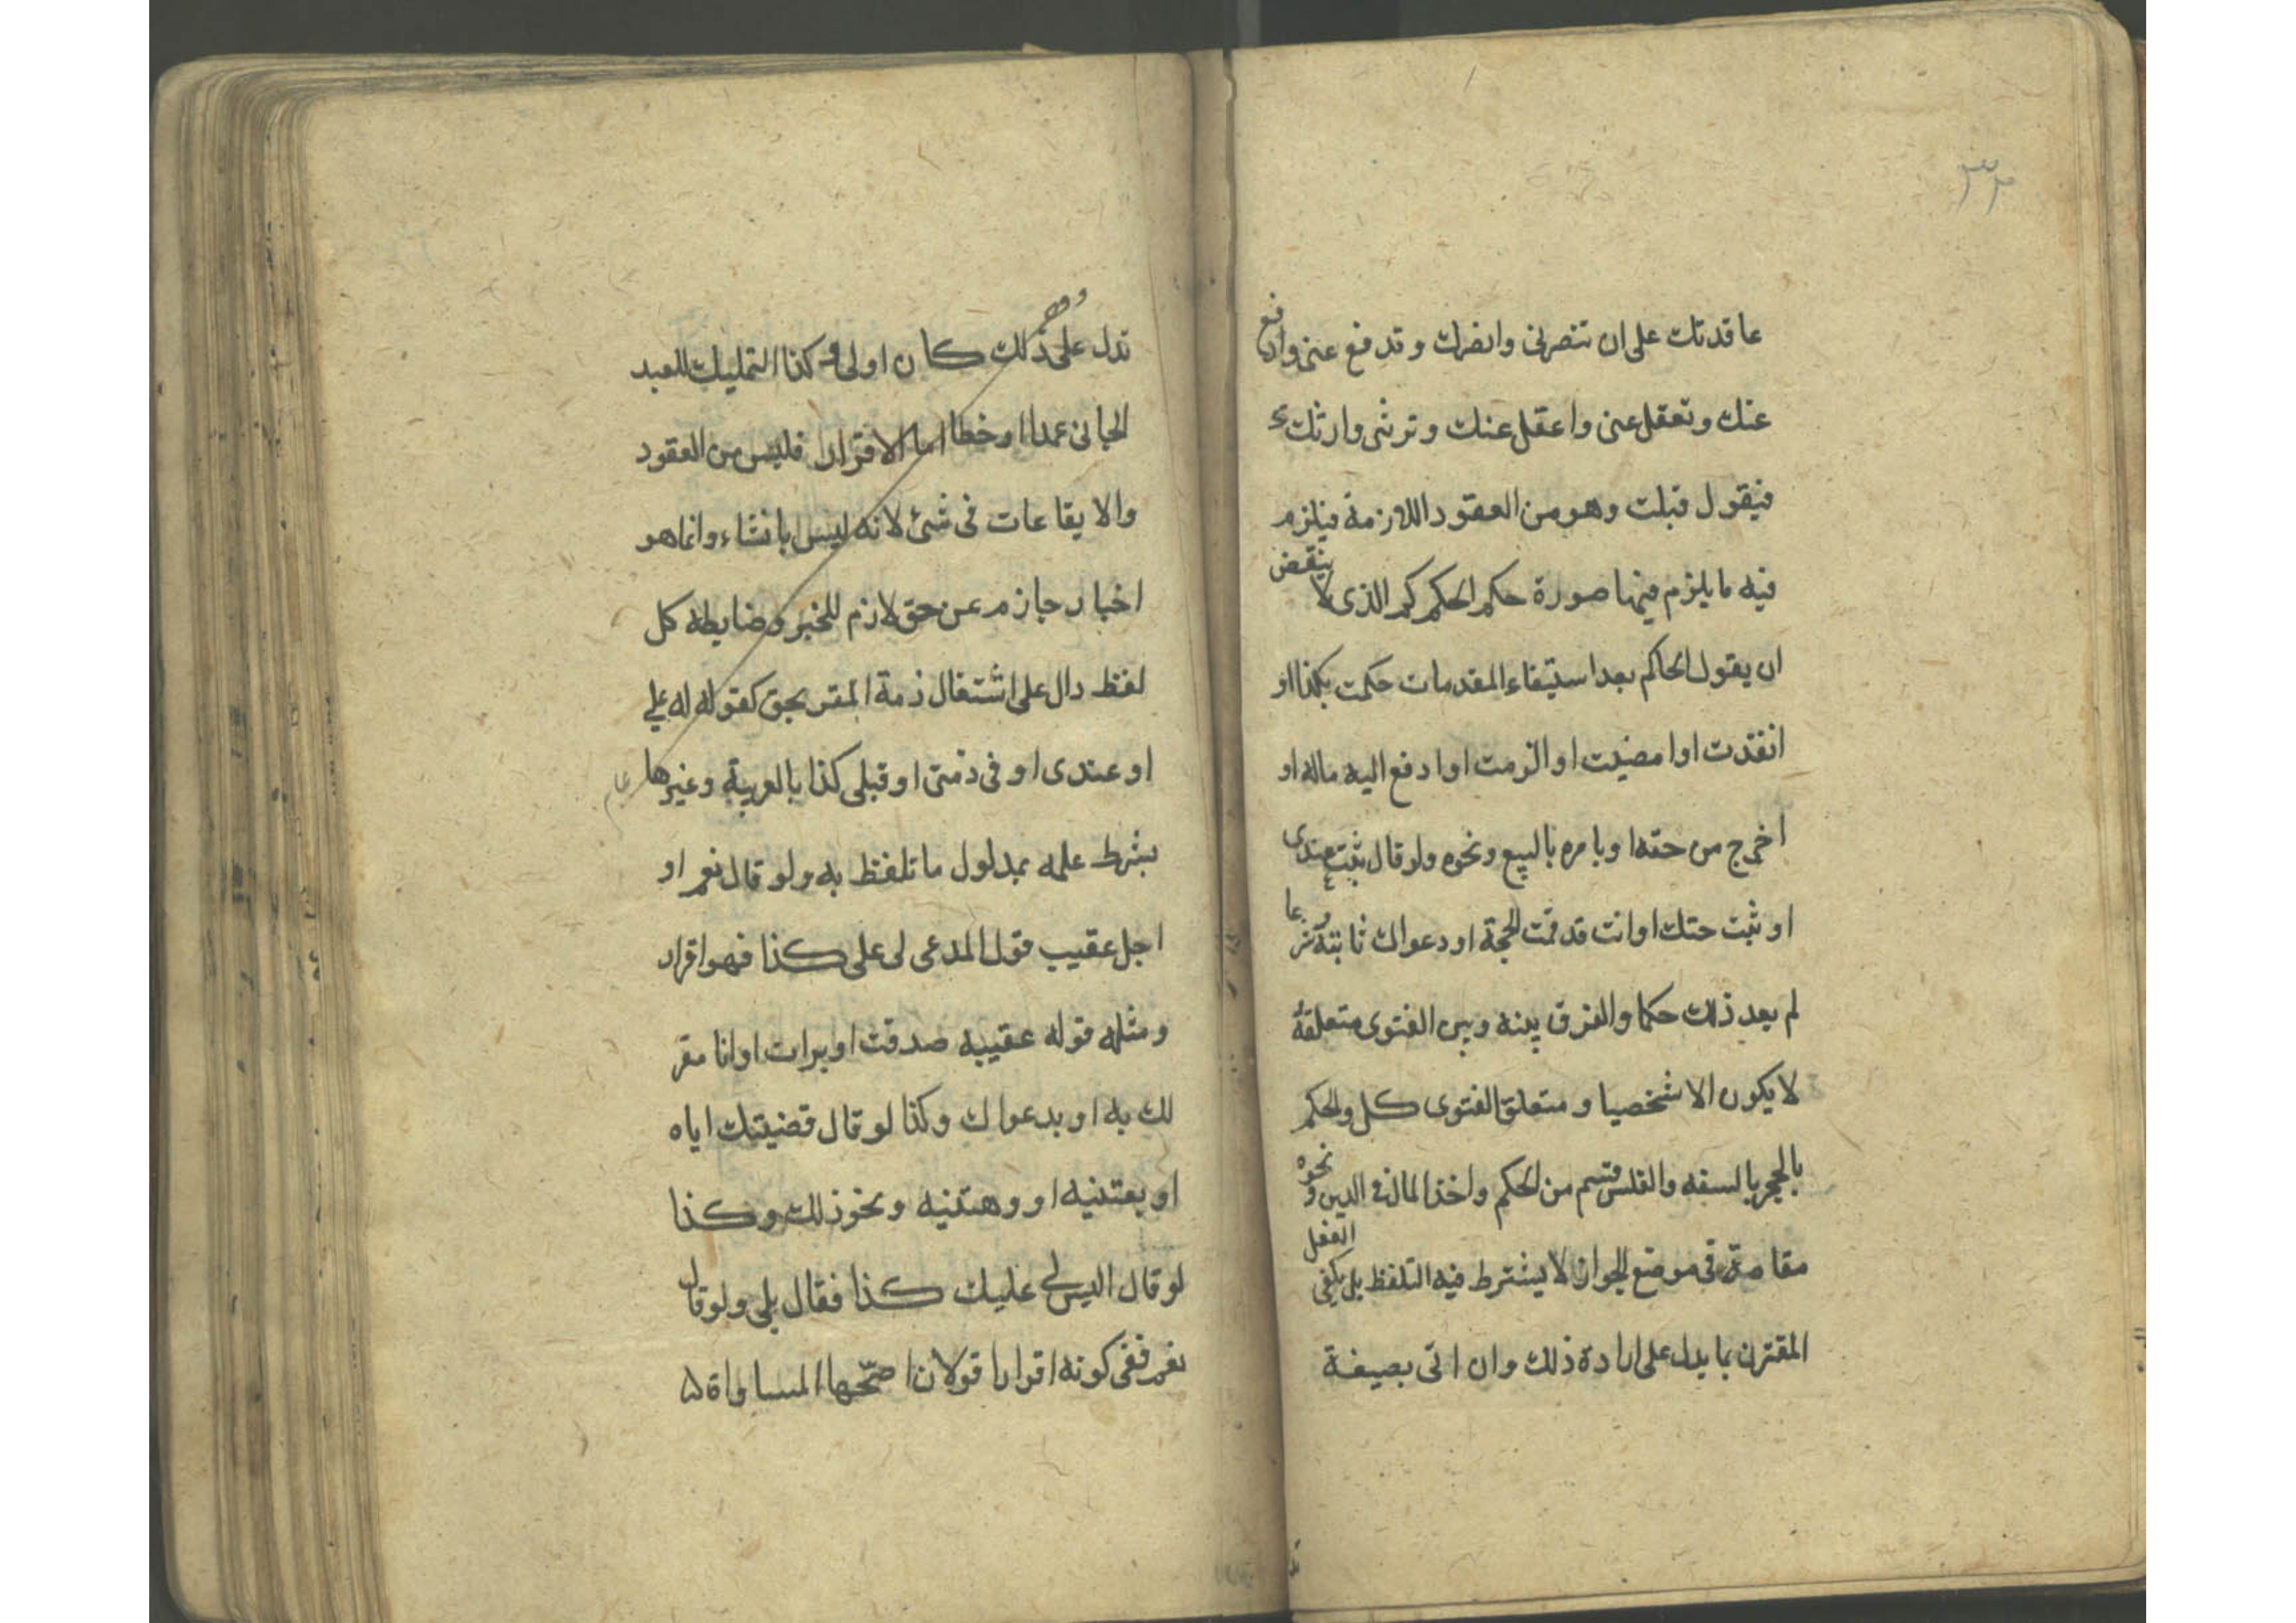 ٣٢
عاقدتك على ان تنصرنى وانصرك وتدفع عنى وادفع
عنك وتعقل عنى واعقل عنك وترثنى وارثك
فيقول قبلت وهو من العقود اللازمة فيلزم
فيه ما يلزم فيها صورة حكم الحاكم الذى لا ينقض
ان يقول الحاكم بعد استيفاء المقدمات حكمت بكذا او
انفذت او امضيت او الزمت او ادفع اليه ماله او
اخرج من حقه او يامره بالبيع ونحوه ولو قال ثبت عندى
او ثبت حقك او انت قد قمت الحجة او دعواك ثابتة شرعا
لم يعد ذلك حكما والفرق بينه وبين الفتوى متعلقه
لا يكون الا شخصيا ومتعلق الفتوى كل والحكم
بالحجر بالسفه والفلس قسم من الحكم واخذ المال فى الدين ونحوه
مقاصة فى موضع الجواز لا يشترط فيه التلفظ بل يكفى الفعل
المقترن بما يدل على ارادة ذلك وان اتى بصيغة
تدل على ذلك كان اولى وكذا التمليك للعبد
الجانى عمدا او خطا اما الاقرار فليس من العقود
والايقاعات فى شئ لانه ليس بانشاء وانما هو
اخبار جازم عن حق لازم للمخبر وضابطه كل
لفظ دال على اشتغال ذمة المقر بحق كقوله له على
او عندى او فى ذمتى او قبلى كذا بالعربية وغيرها
بشرط علمه بمدلول ما تلفظ به ولو قال نعم او
اجل عقيب قول المدعى لى على كذا فهو اقرار
ومثله قوله عقيبه صدقت او برات او انا مقر
لك به او بدعواك وكذا لو قال قضيتك اياه
او بعتنيه او وهبتنيه ونحو ذلك وكذا
لو قال اليس لى عليك كذا فقال بلى ولو قال
نعم ففى كونه اقرارا قولان اصحها المساواة